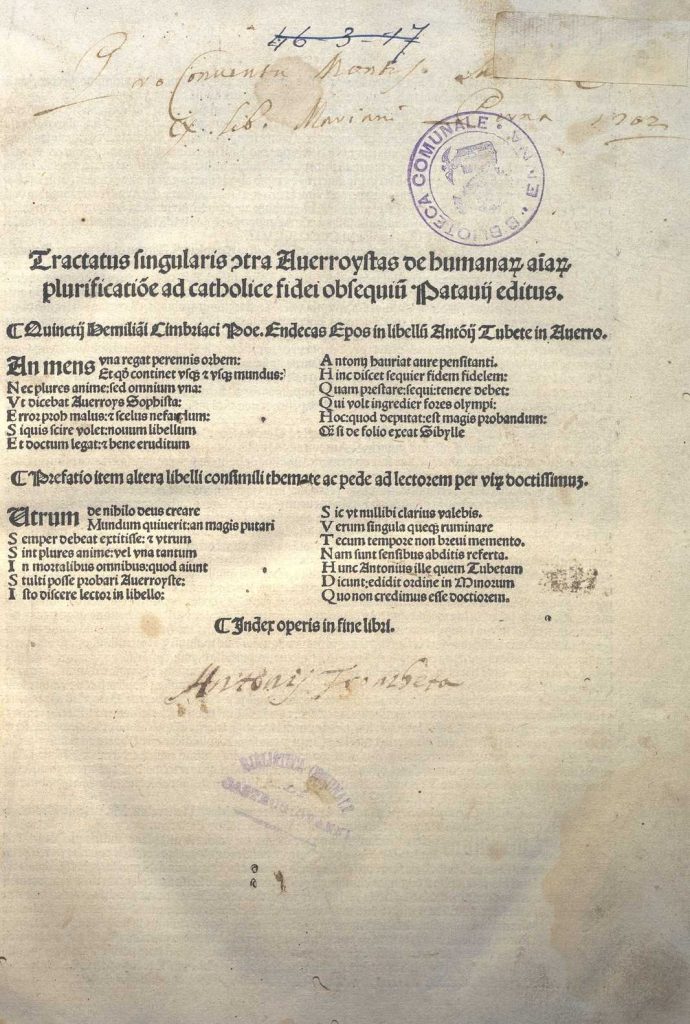 46-3-17
Pro Conventu Montis
ex lib. Mariani Perna 1702
BIBLIOTECA COMUNALE • ENNA •
Tractatus singularis ↄtra Auerroystas de humanaꝝ aīaꝝ
plurificatiōe ad catholice fidei obsequiū Patauij editus.
¶ Quinctij Hemiliāi Cimbriaci Poe. Endecas Epos in libellū Antōij Tubete in Auerro.
An mens vna regat perennis orbem:
Et qͦ continet vsqꝫ ⁊ vsqꝫ mundus:
Nec plures anime: sed omnium vna:
Vt dicebat Auerroys Sophista:
Error proh malus: ⁊ scelus nefandum:
Si quis scire volet: nouum libellum
Et doctum legat: ⁊ bene eruditum
Antonij hauriat aure pensitanti.
Hinc discet sequier fidem fidelem:
Quam prestare: sequi: tenere debet:
Qui volt ingredier fores olympi:
Hoc: quod deputat: est magis probandum:
Qꝫ si de folio exeat Sibylle
¶ Prefatio item altera libelli consimili themate ac pede ad lectorem per viꝝ doctissimuꝫ.
Utrum de nihilo deus creare
Mundum quiuerit: an magis putari
Semper debeat extitisse: ⁊ vtrum
Sint plures anime: vel vna tantum
In mortalibus omnibus: quod aiunt
Stulti posse probari Auerroyste:
Isto discere lector in libello:
Sic vt nullibi clarius valebis.
Verum singula queqꝫ ruminare
Tecum tempore non breui memento.
Nam sunt sensibus abditis referta.
Hunc Antonius ille quem Tubetam
Dicunt: edidit ordine in Minorum
Quo non credimus esse doctiorem.
¶ Index operis in fine libri.
Antonij Trombeta
BIBLIOTECA COMUNALE